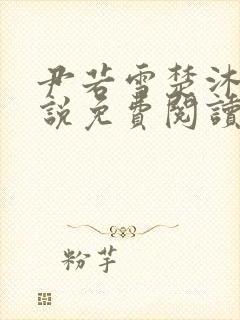 尹若雪楚沐
說免費閱讀
粉芋